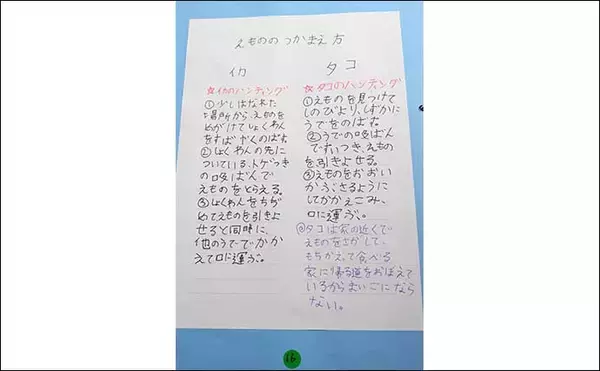 えもののつかまえ方
イカ
☆イカのハンティング
①少しはなれた
場所から、えものを
めがけてしょくわん
をすばやくのばす。
②しょくわんの先に
ついている、トゲつき
の吸ばんで
えものをとらえる。
③しょくわんをちぢ
めてえものを引きよ
せると同時に、
他のうででかか
えて口に運ぶ。
タコ
☆タコのハンティング
①えものを見つけて
しのびより、しずかに
うでをのばす。
②うでの吸ばん
ですいつき、えもの
を引きよせる。
③えものをおおい
かぶさるように
してかかえこみ、
口に運ぶ。
◎タコは家の近くで
えものをさがして、
もちかえって食べる
家に帰る道をおぼえて
いるからまいごになら
ない。
16